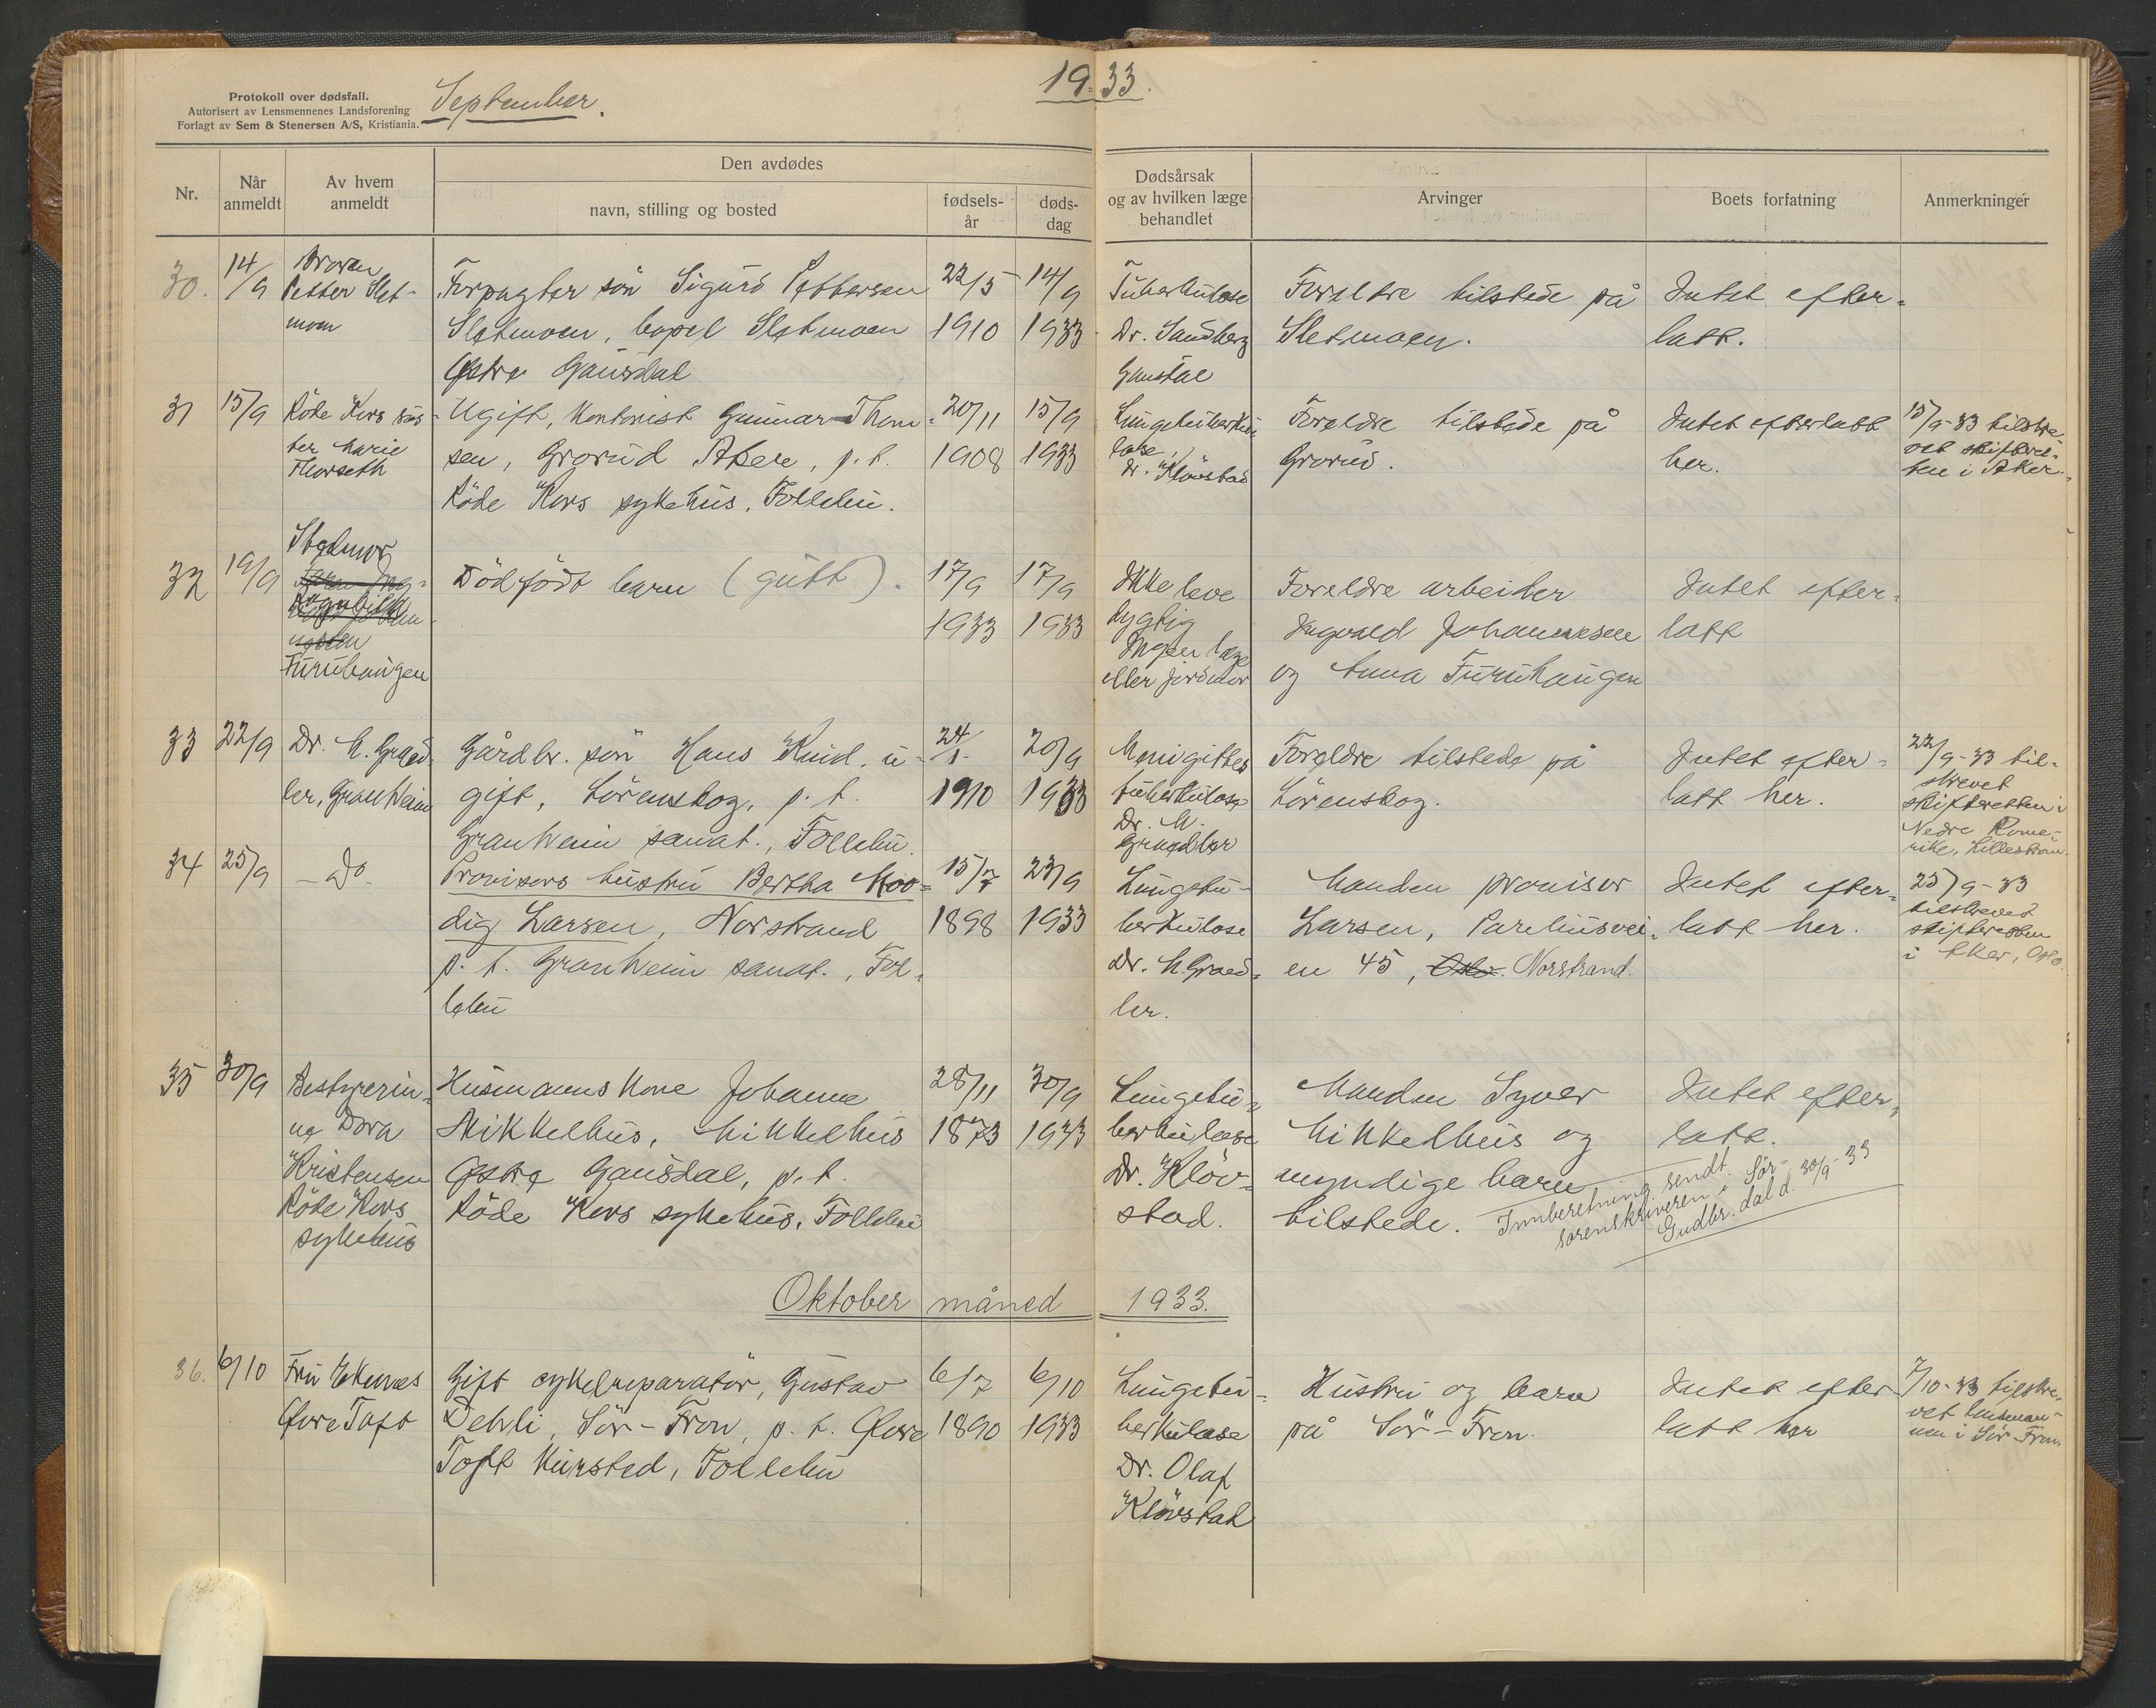 19.33.
Protokoll over dødsfall.
Autorisert av Lensmennenes Landsforening
Forlagt av Sem & Stenersen A/S, Kristiania.
September.
Nr.
Når anmeldt
Av hvem anmeldt
Den avdødes
navn, stilling og bosted
fødsels-
år
døds-
dag
Dødsårsak
og av hvilken læge
behandlet
Arvinger
Boets forfatning
Anmerkninger
30.
14/9
Broren
Petter Slet-
moen
Forpagter sön Sigurd Pettersen
Sletmoen, bopel Sletmoen
Østre Gausdal
22/5
1910
14/9
1933
Tuberkulose
Dr. Sandberg
Gausdal
Foreldre tilstede på
Sletmoen.
Intet efter=
latt.
31
15/9
Röde Kors sös-
ter Marie
Thorseth
Ugift, Kontorist Gunnar Thom=
sen, Grorud Aker, p.t.
Röde Kors sykehus, Follebu.
20/11
1908
15/9
1933
Lungetuberku
lose,
Dr. Klövstad
Foreldre tilstede på
Grorud.
Intet efterlatt
her.
15/9-33 tilskre-
vet skifteret-
ten i Aker.
32
19/9
Stedmor
Ragnhild
Furuhaugen
Dödfödt barn (gutt).
17/9
1933
17/9
1933
Ikke leve
dygtig
Ingen læge
eller jordmor
Foreldre arbeider
Ingvald Johannesen
og Anna Furuhaugen
Intet efter=
latt
33
22/9
Dr. M. Graed-
ler, Granheim
Gårdbr. sön Hans Ruud, u-
gift, Lörenskog, p.t.
Granheim sanat., Follebu.
24/1
1910
20/9
1933
Menigittes
tuberkulose
Dr. M.
Graedler
Foreldre tilstede på
Lörenskog.
Intet efter=
latt her.
22/9-33 til-
skrevet
skifteretten i
Nedre Rome-
rike, Lilleström.
34
25/9
— Do —
Provisors hustru Bertha Moo=
dig Larsen, Norstrand
p.t. Granheim sanat., Fol=
lebu
15/7
1898
23/9
1933
Lungetu-
berkulose
Dr. M Graed=
ler.
Manden provisor
Larsen, Parkusvei=
en 45, Oslo. Norstrand.
Intet efter=
latt her.
25/9-33
tilskrevet
skifteretten
i Aker, Oslo.
35
30/9
Bestyrerin=
ne Dora
Kristensen
Röde Kors
sykehus
Husmanns kone Johanne
Mikkelhus, Mikkelhus
Østre Gausdal, p.t.
Röde Kors sykehus, Follebu
28/11
1873
30/9
1933
Lungetu=
berkulose
Dr. Klöv=
stad.
Manden Syver
Mikkelhus og
myndige barn
tilstede.
Intet efter=
latt.
Innberetning sendt
sorenskriveren i Sör-
Gudbr. dal d. 30/9-33
Oktober måned 1933.
36.
6/10
Fru Ekenes
Øvre Toft
Gift sykkelreparatör, Gustav
Dehli, Sör-Fron, p.t. Øvre
Toft kursted, Follebu
6/7
1890
6/10
1933
Lungetu=
berkulose
Dr. Olaf
Klövstad
Hustru og barn
på Sör-Fron.
Intet efter
latt her
7/10-33 tilskre-
vet lensman-
nen i Sör-Fron